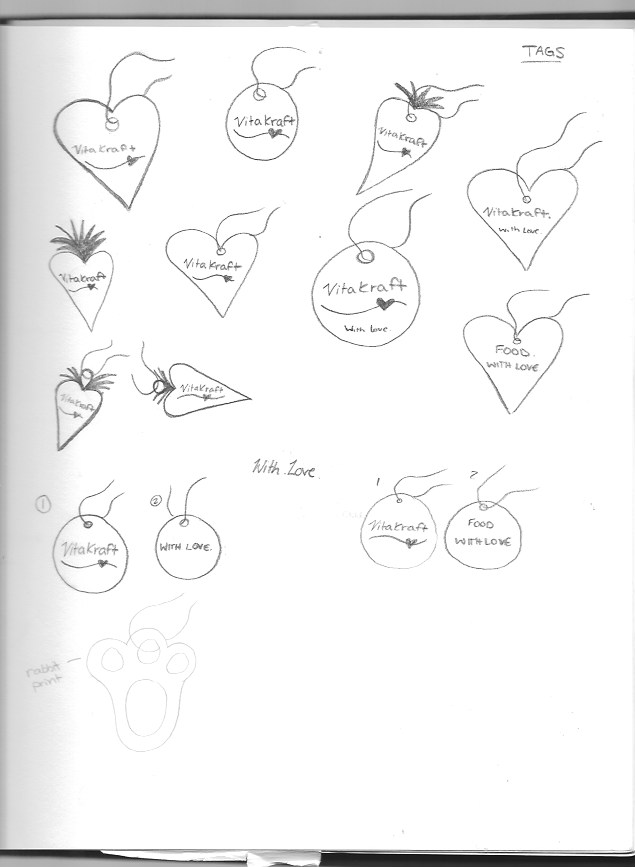 TAGS
Vitakraft
Vitakraft
Vitakraft
Vitakraft.
With Love.
Vitakraft
Vitakraft
Vitakraft
With love.
FOOD.
WITH LOVE
Vitakraft
Vitakraft
With Love.
1
2
1
2
Vitakraft
WITH LOVE.
Vitakraft
FOOD
WITH LOVE
rabbit
print